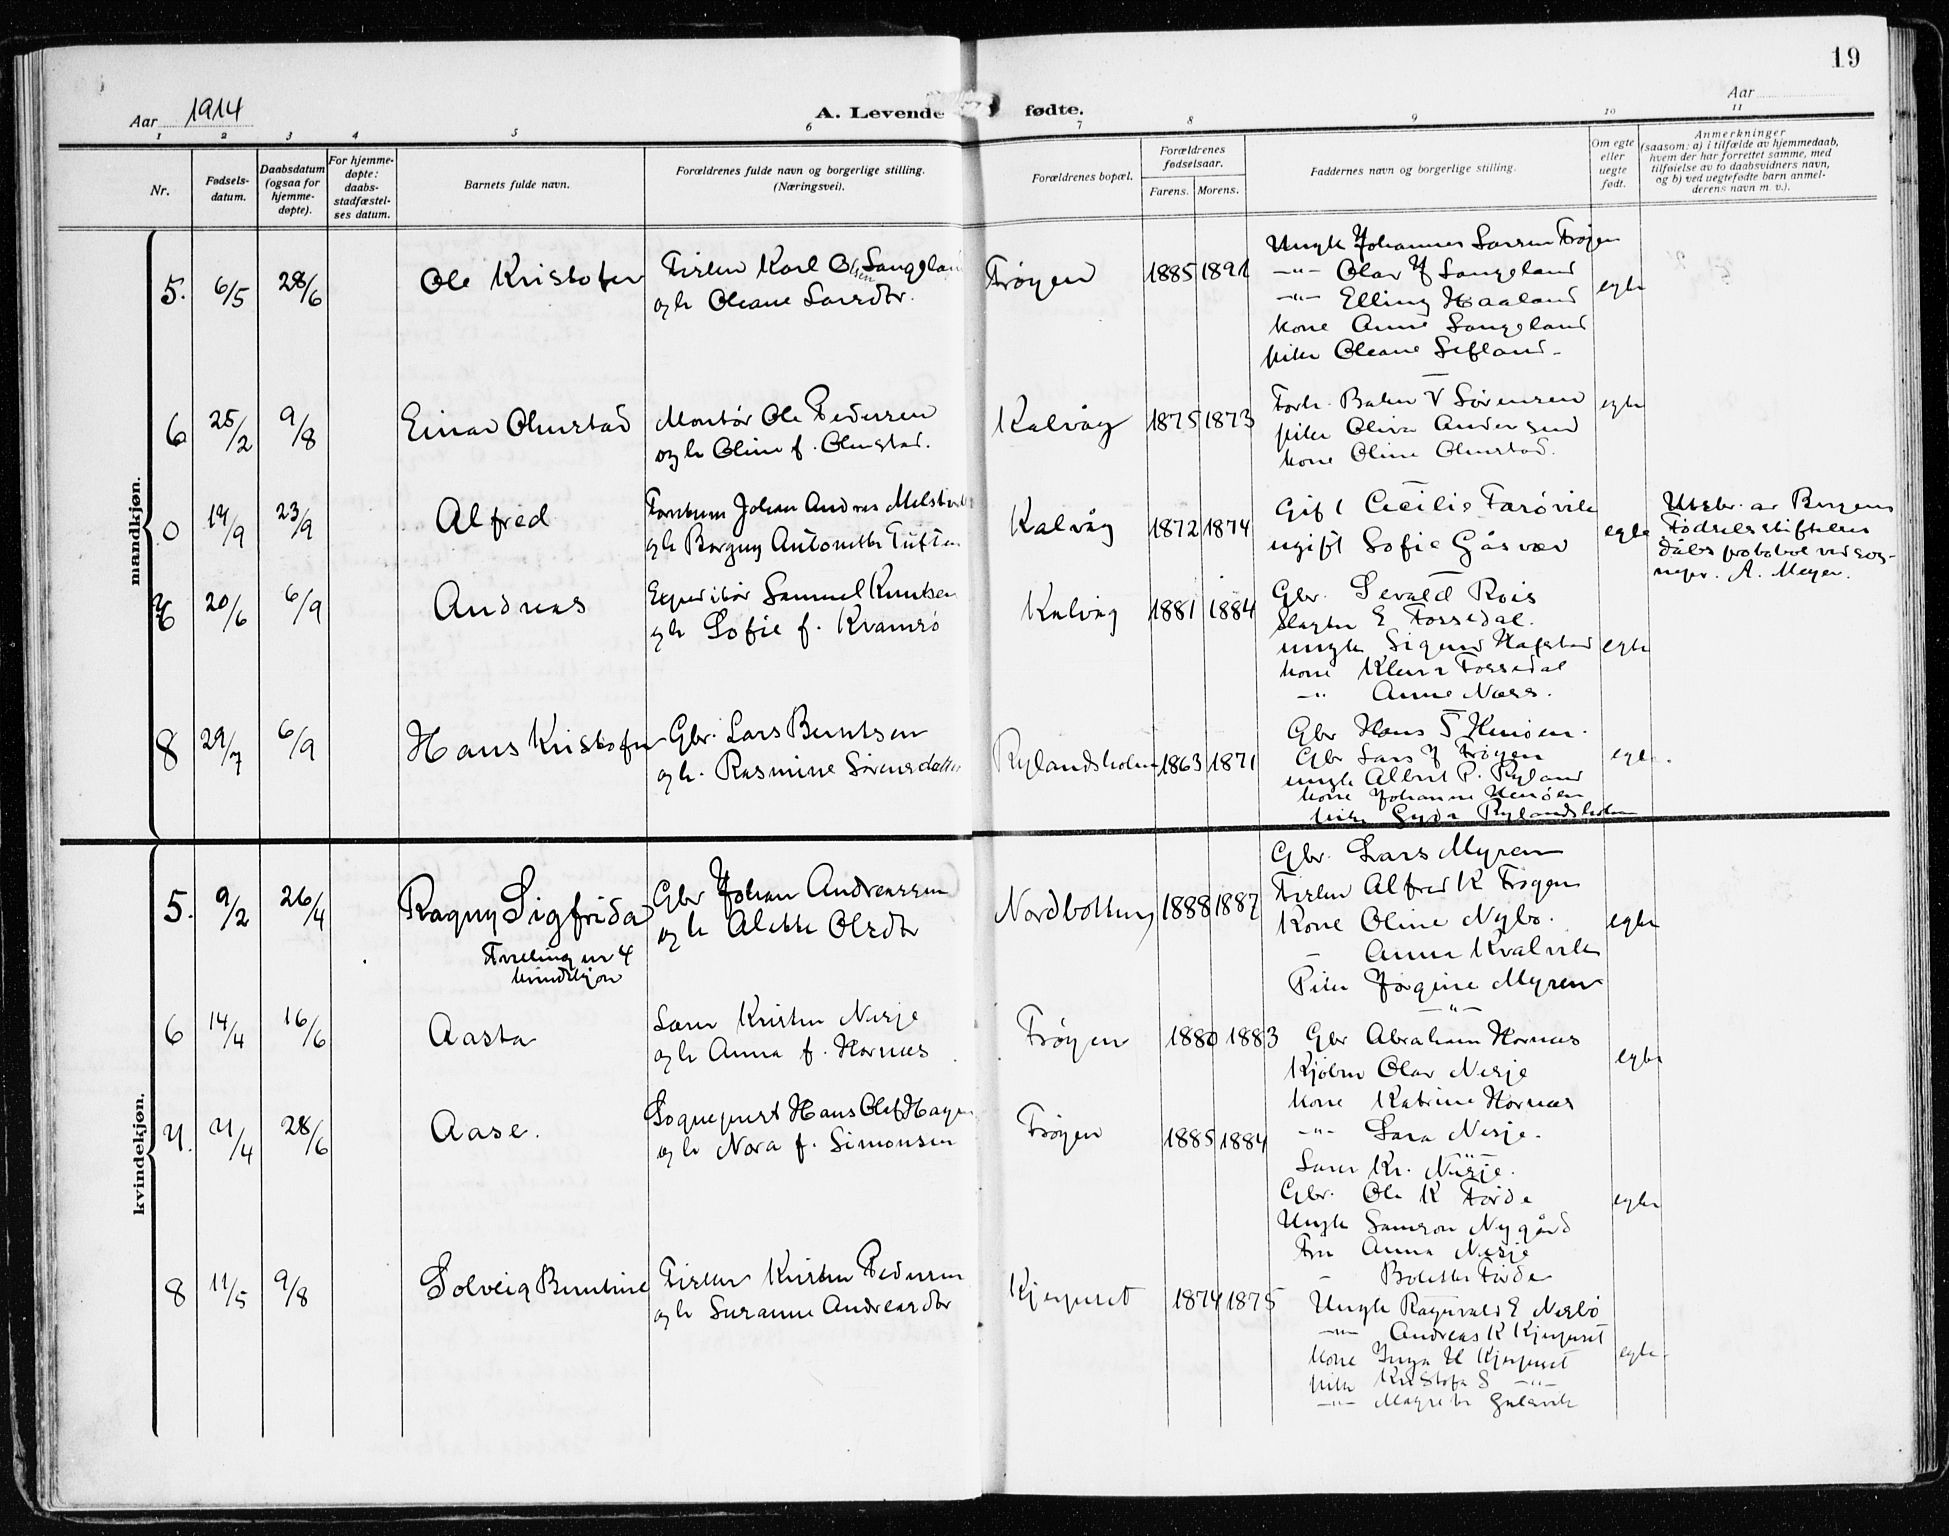 19
Aar 1914
A. Levende fødte.
Aar
1 2 3 4 5 6 7 8 9 10 11
Nr.
Fødsels-
datum.
Daabsdatum
(ogsaa for
hjemme-
døpte).
For hjemme-
døpte:
daabs-
stadfæstel-
ses datum.
Barnets fulde navn.
Forældrenes fulde navn og borgerlige stilling.
(Næringsvei).
Forældrenes bopæl.
Forældrenes
fødselsaar.
Farens. Morens.
Faddernes navn og borgerlige stilling.
Om egte
eller
uegte
født.
Anmerkninger
(saasom: a) i tilfælde av hjemmedaab,
hvem der har forrettet samme, med
tilføielse av to daabsvidners navn,
og b) ved uegtefødte barn anmel-
derens navn m. v.).
mandkjøn.
5. 6/5 28/6 Ole Kristofer
Fisker Karl Olsen Langeland
og h Oleane Larsdtr.
Frøyen 1885 1891
Ungk Johannes Larsen Frøyen
-"- Olav J Langeland
-"- Elling Haaland
kone Anne Langeland
pike Oleane Sefland
egte
6 25/2 9/8 Einar Olmstad
Montør Ole Pedersen
og h Oline f. Olmstad.
Kalvåg 1875 1873
Forh. V Sørensen
pike Andersen
kone Oline Olmstad.
egte
0 14/9 23/9 Alfred
Johan Andreas
og h Borgny Antonette Tuften
Kalvåg 1872 1874
Gift Cecilie Farøvik
ugift Sofie Gåsvær
egte
Utskr. av Bergens
Fødselsstiftelses
dåbsprotokol ved sog-
nepr. A. Meyer.
20/6 6/9 Andreas
Expeditør Samuel Knutsen
og h Sofie f. Kvamsø
Kalvåg 1881 1884
Gbr. Sevald Rois
E Fossedal.
ungk Sigurd Hafstad
kone Fossedal
-"- Anne Næss.
egte
8 29/7 6/9 Hans Kristofer
Gbr. Lars Berntsen
og h. Rasmine Sørensdatter
Rylandsholm 1863 1871
Gbr Hans T Henøen.
Gbr Lars J Frøyen
ungk Albert P. Ryland
kone Johanne Henøen
pike Gyda Rylandsholm
egte.
kvindekjøn.
5. 9/2 26/4 Ragny Sigfrida
Tvveling nr 4
kvindekjøn
Gbr Johan Andreassen
og h Alette Olsdtr
Nordbotten 1888 1887
Gbr. Lars Myren
Fisker Alfred K Frøyen
Kone Oline Nybø.
- Anna Kvalvik
Pike Jørgine Myren
egte
6 14/4 16/6 Aasta
Lærer Kristen Nesje
og h Anna f. Hornæs
Frøyen 1880 1883
Gbr Abraham Hornæs
Kjøbm Olav Nesje
kone Katrine Hornæs
-"- Lara Nesje.
egte
7. 21/4 28/6 Aase.
Sogneprest Hans Olaf Hagen
og h Nora f. Simonsen
Frøyen 1885 1884
Lærer Kr. Nesje.
Gbr. Ole K Førde
Ungk Samson Nygård
Fru Anna Nesje
- Bolette Førde
egte
8 11/5 9/8 Solveig Berntine
Fisker Kristen Pedersen
og h Susanne Andreasdtr
1874 1875
Ungk Ragnvald E Nesbø
-"- Andreas K
kone Inga H
pike Kristofa S -"-
-"- Magrete Gulevik
egte.